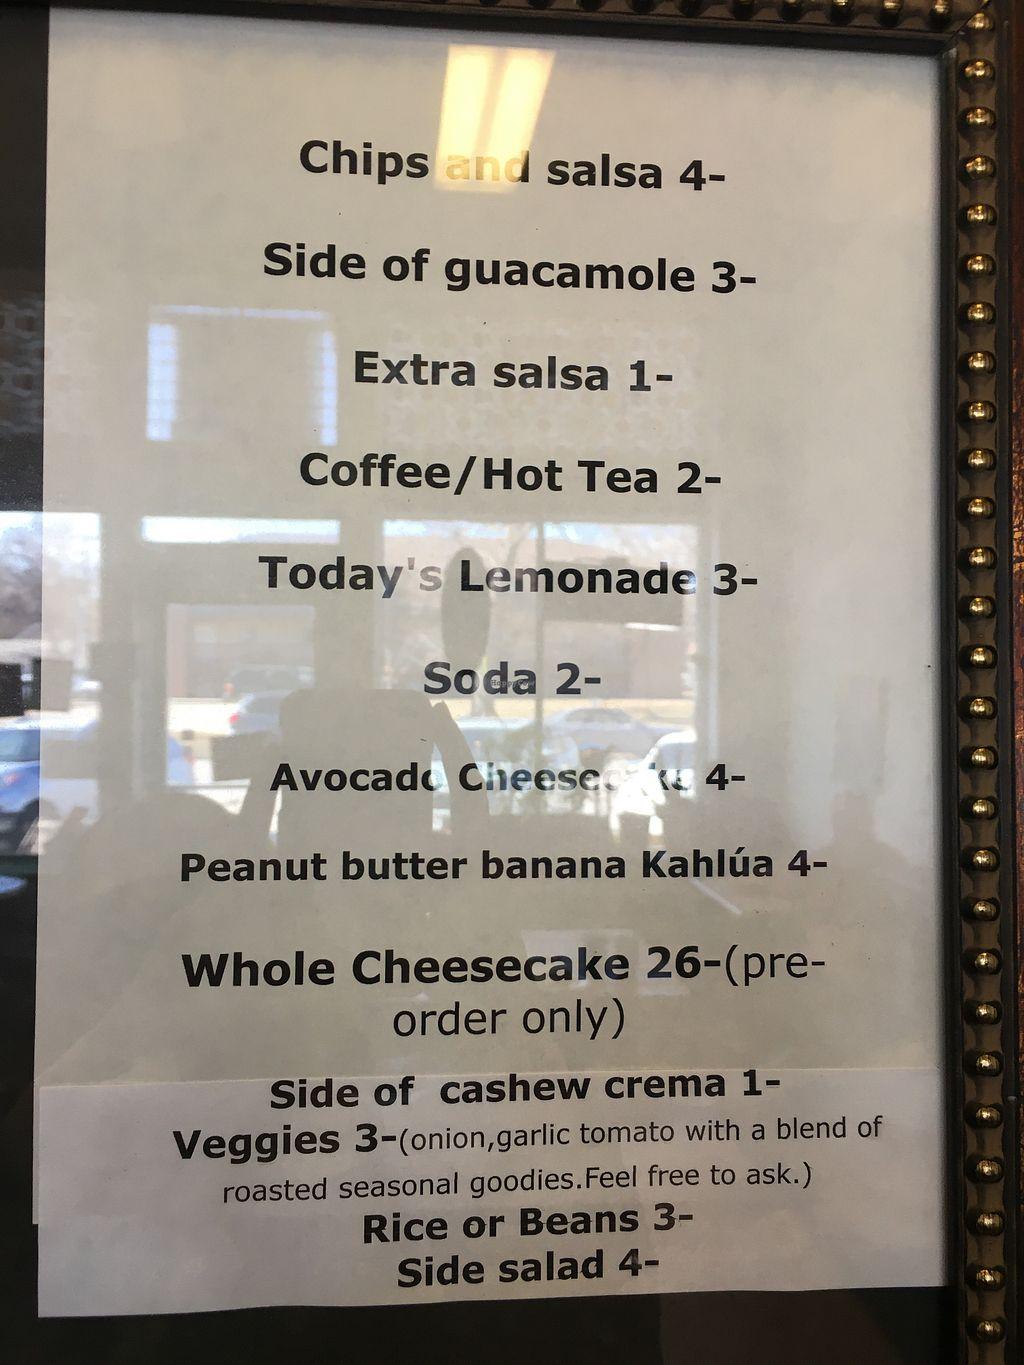 Chips and salsa 4-
Side of guacamole 3-
Extra salsa 1-
Coffee/Hot Tea 2-
Today's Lemonade 3-
Soda 2-
Avocado Cheesecake 4-
Peanut butter banana Kahlúa 4-
Whole Cheesecake 26-(pre-
order only)
Side of cashew crema 1-
Veggies 3-(onion,garlic tomato with a blend of
roasted seasonal goodies.Feel free to ask.)
Rice or Beans 3-
Side salad 4-